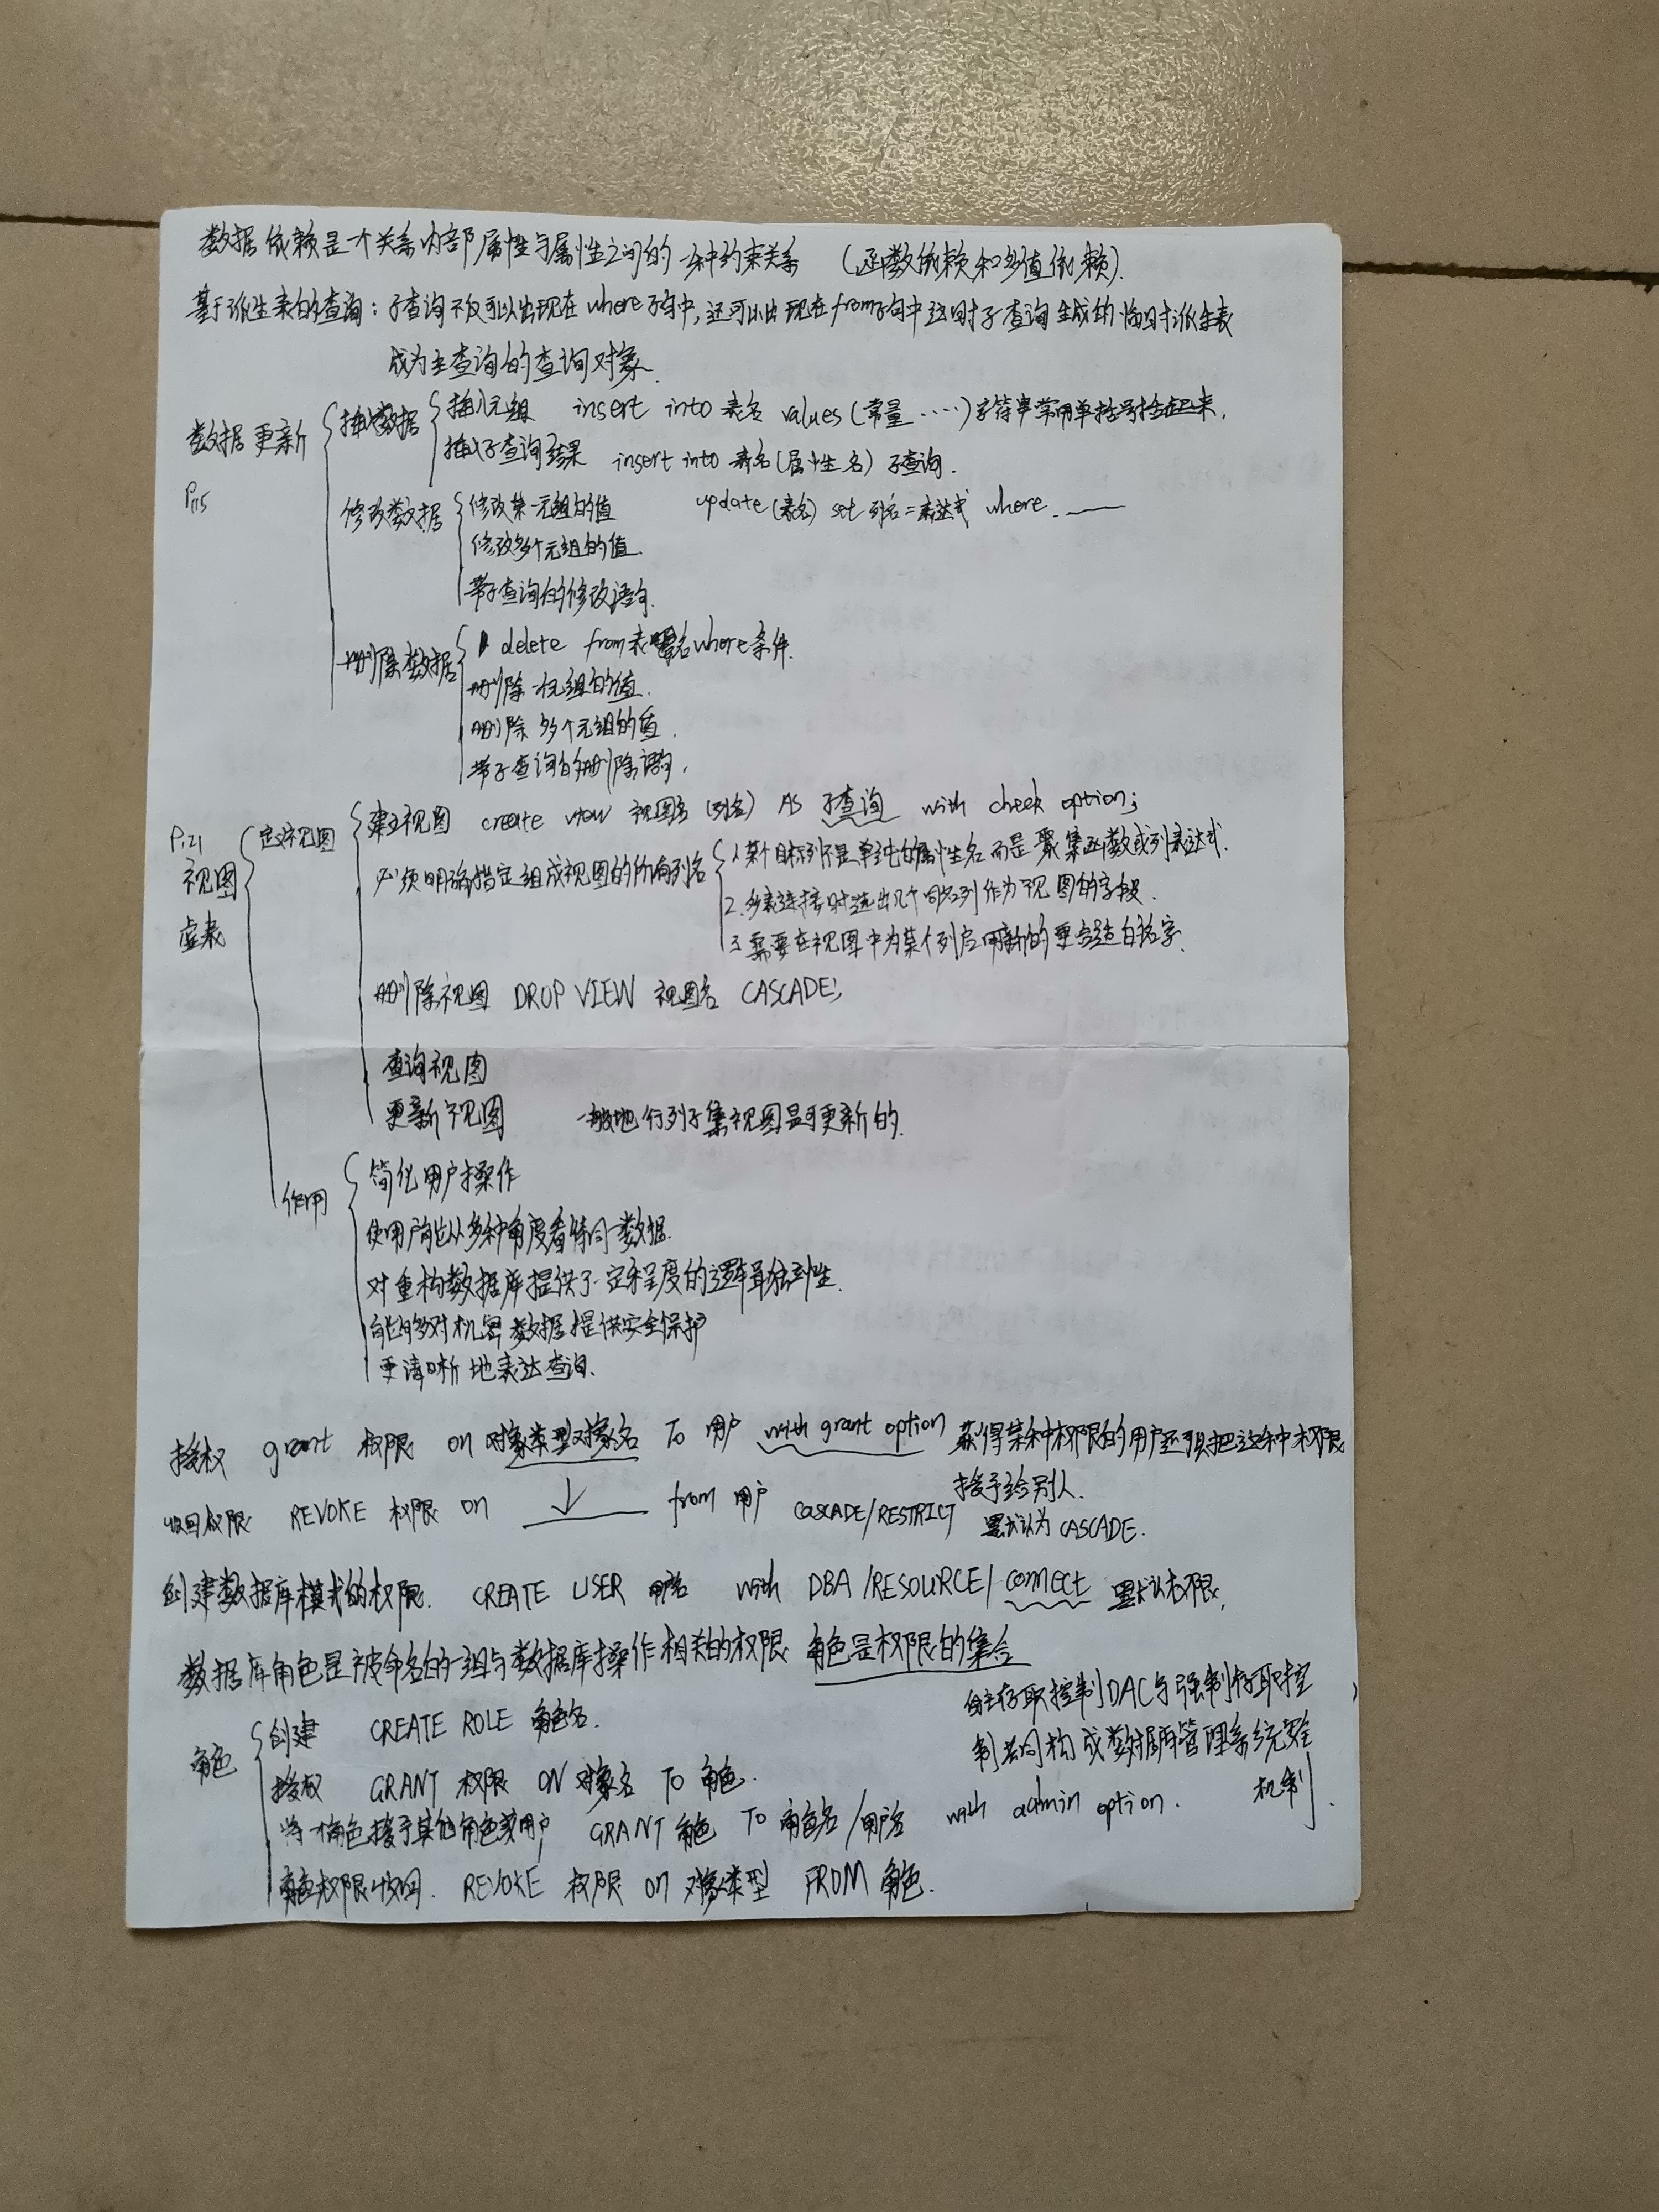 数据依赖是一个关系内部属性与属性之间的一种约束关系 (函数依赖和多值依赖).
基于派生表的查询: 子查询不仅可以出现在where子句中,还可以出现在from子句中这时子查询生成的临时派生表
成为主查询的查询对象.
数据更新
P115
插入数据
插入元组 insert into 表名 values(常量 ……)字符串常用单括号括起来.
插入子查询结果 insert into 表名(属性名) 子查询.
修改数据
修改某一元组的值 update(表名) set 列名=表达式 where.
修改多个元组的值.
带子查询的修改语句.
删除数据
delete from表名where条件.
删除一个元组的值.
删除多个元组的值.
带子查询的删除语句.
P121
视图
虚表
定义视图
建立视图 create view 视图名 (列名) AS 子查询 with check option;
必须明确指定组成视图的所有列名
1.某个目标列不是单纯的属性名而是聚集函数或列表达式.
2.多表连接时选出几个同名列作为视图的字段.
3.需要在视图中为某个列启用新的更合适的名字.
删除视图 DROP VIEW 视图名 CASCADE;
查询视图
更新视图 一般地行列子集视图是可更新的.
作用
简化用户操作
使用户能从多种角度看待同一数据.
对重构数据库提供了一定程度的逻辑独立性.
能够对机密数据提供安全保护
更清晰地表达查询.
授权 grant 权限 on 对象类型对象名 To 用户 with grant option 获得某种权限的用户还可以把这种权限
授予给别人.
收回权限 REVOKE 权限 on from 用户 CASCADE/RESTRICT 默认为CASCADE.
创建数据库模式的权限. CREATE USER 用户名 with DBA/RESOURCE/connect 默认权限,
数据库角色是被命名的一组与数据库操作相关的权限 角色是权限的集合
角色
创建 CREATE ROLE 角色名.
授权 GRANT 权限 ON 对象名 To 角色.
将一个角色授予其他角色或用户 GRANT 角色 To 角色名/用户名 with admin option.
角色权限收回. REVOKE 权限 on 对象类型 FROM 角色.
自主存取控制DAC与强制存取控
制共同构成数据库管理系统安全
机制.